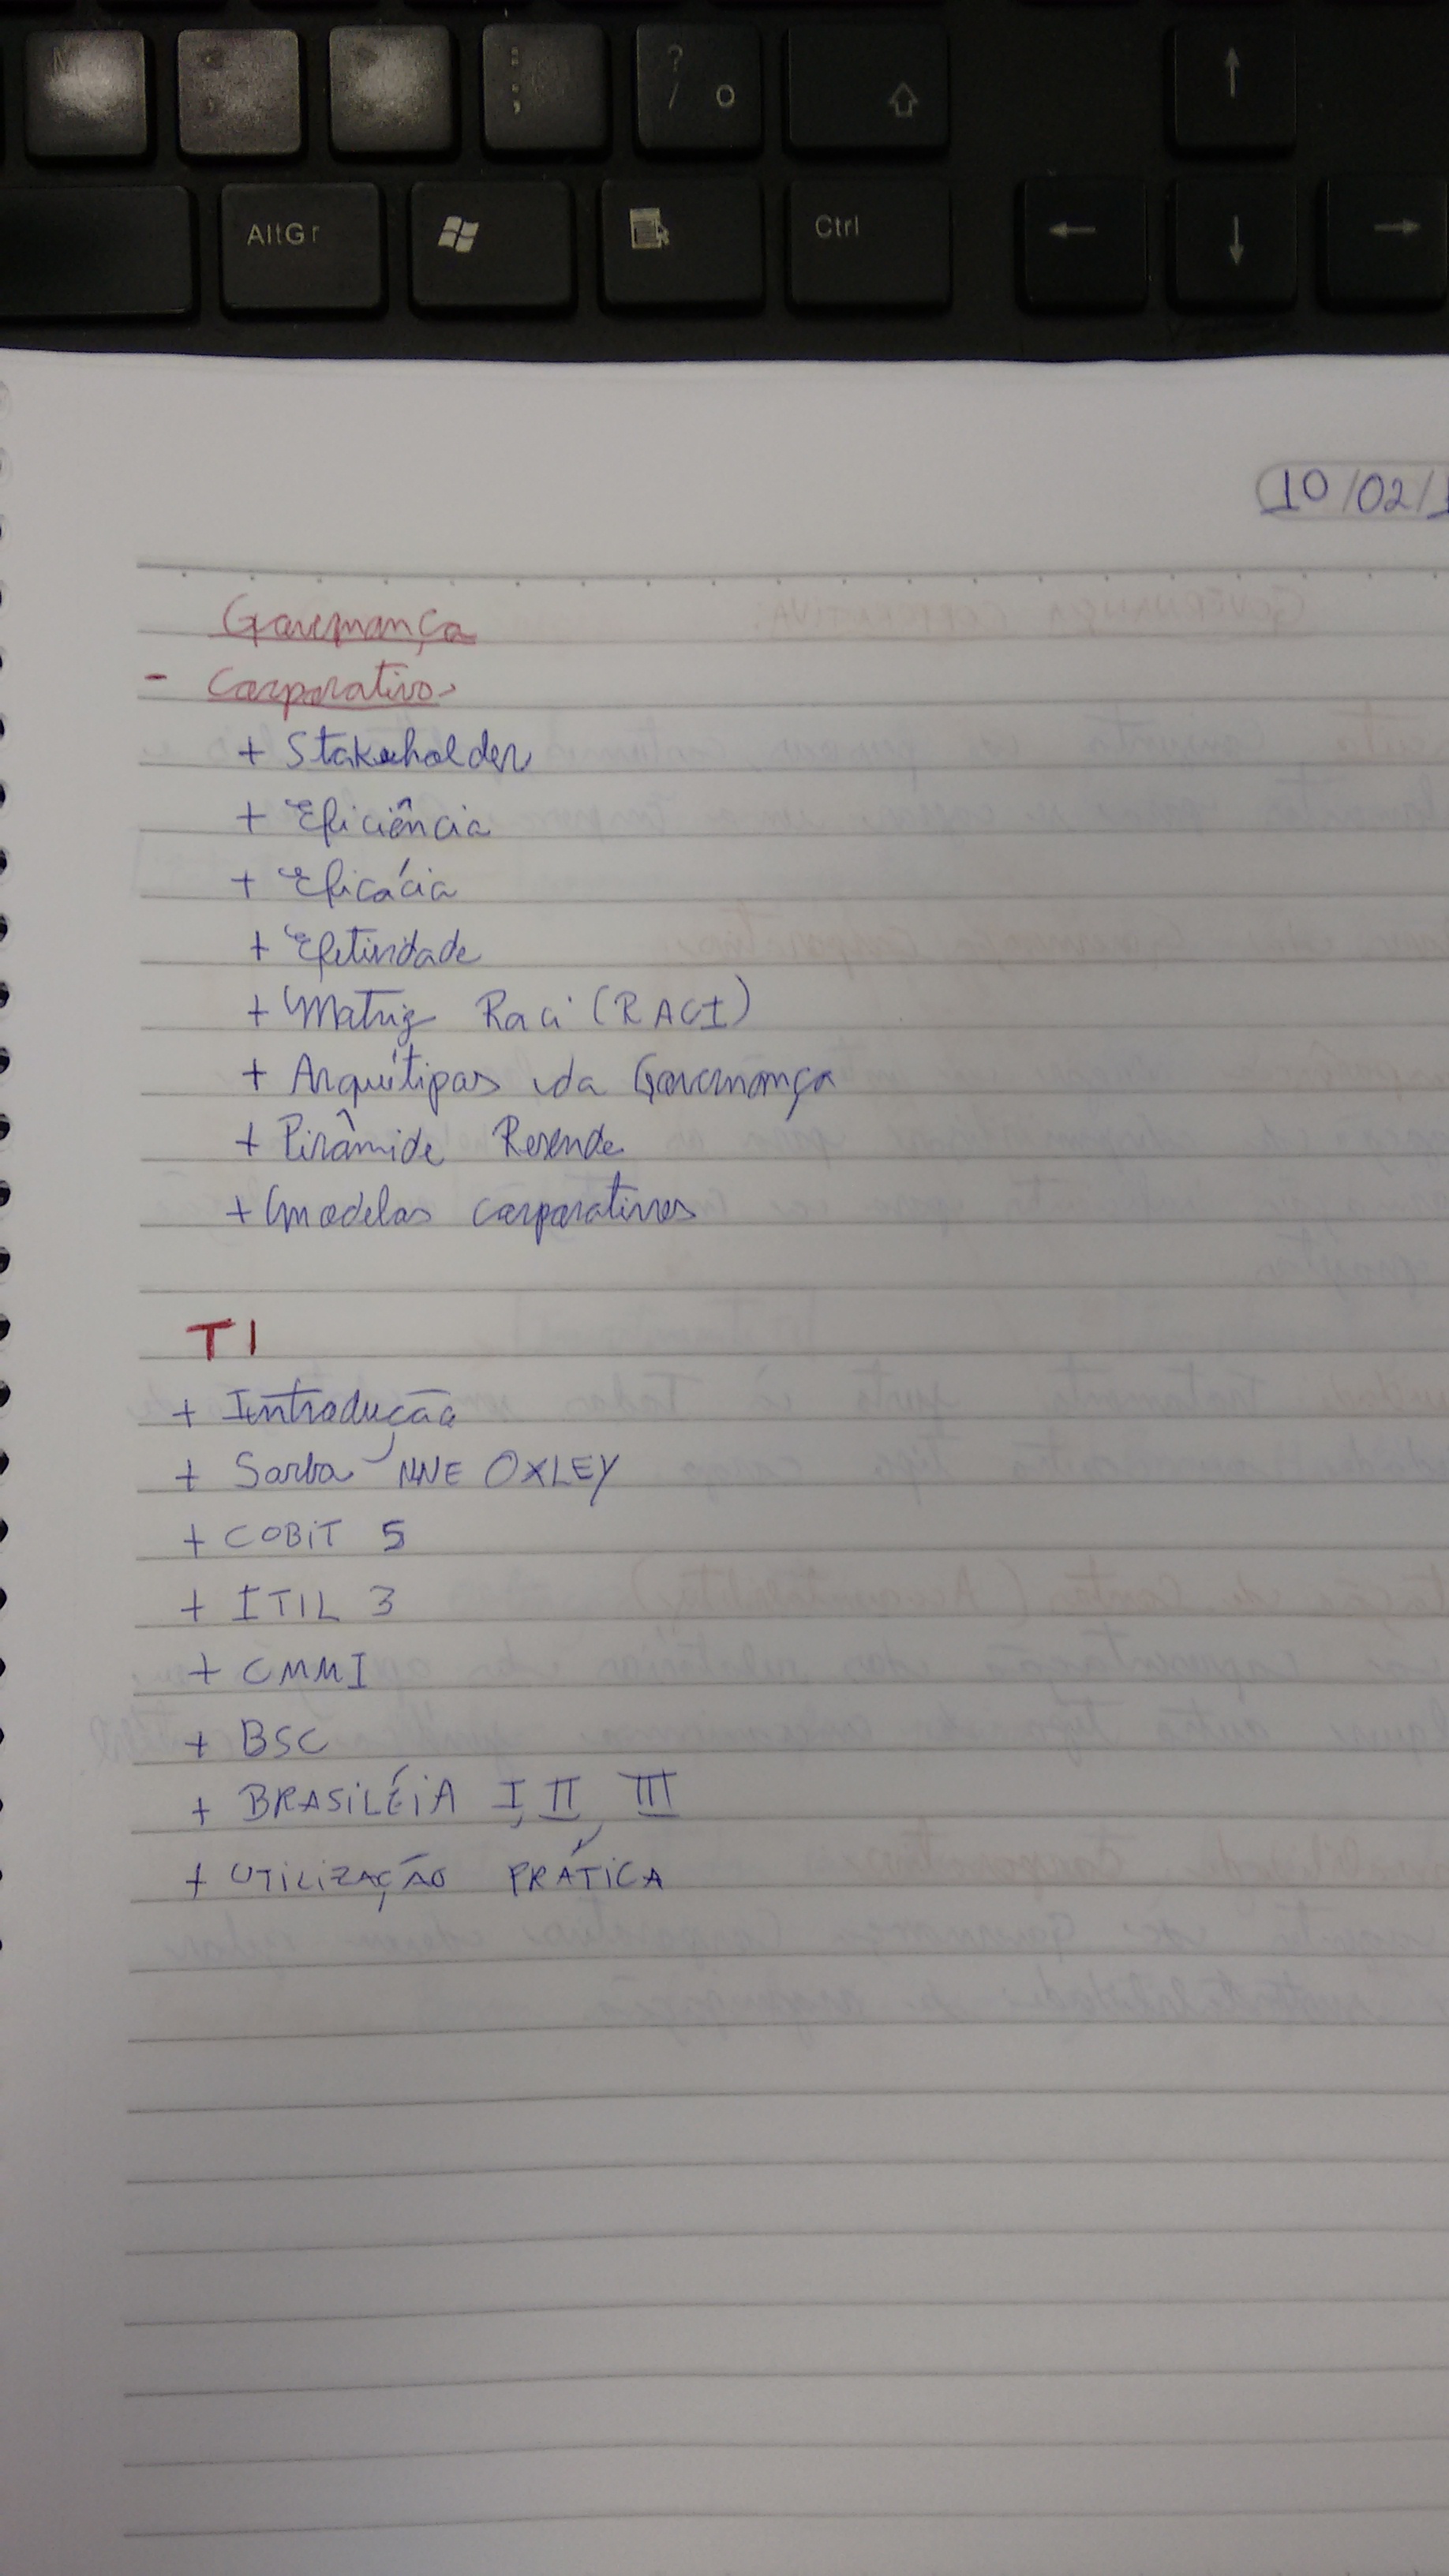 ? / O
: ;
AltGr
Ctrl
10/02/1
Governança
- Corporativo
+ Stakeholder
+ Eficiência
+ Eficácia
+ Efetividade
+ Matriz Raci (RACI)
+ Arquétipos da Governança
+ Pirâmide Resende
+ Modelos corporativos
TI
+ Introdução
+ Sarba NNE OXLEY
+ COBIT 5
+ ITIL 3
+ CMMI
+ BSC
+ BRASILÉIA I, II, III
+ UTILIZAÇÃO PRÁTICA